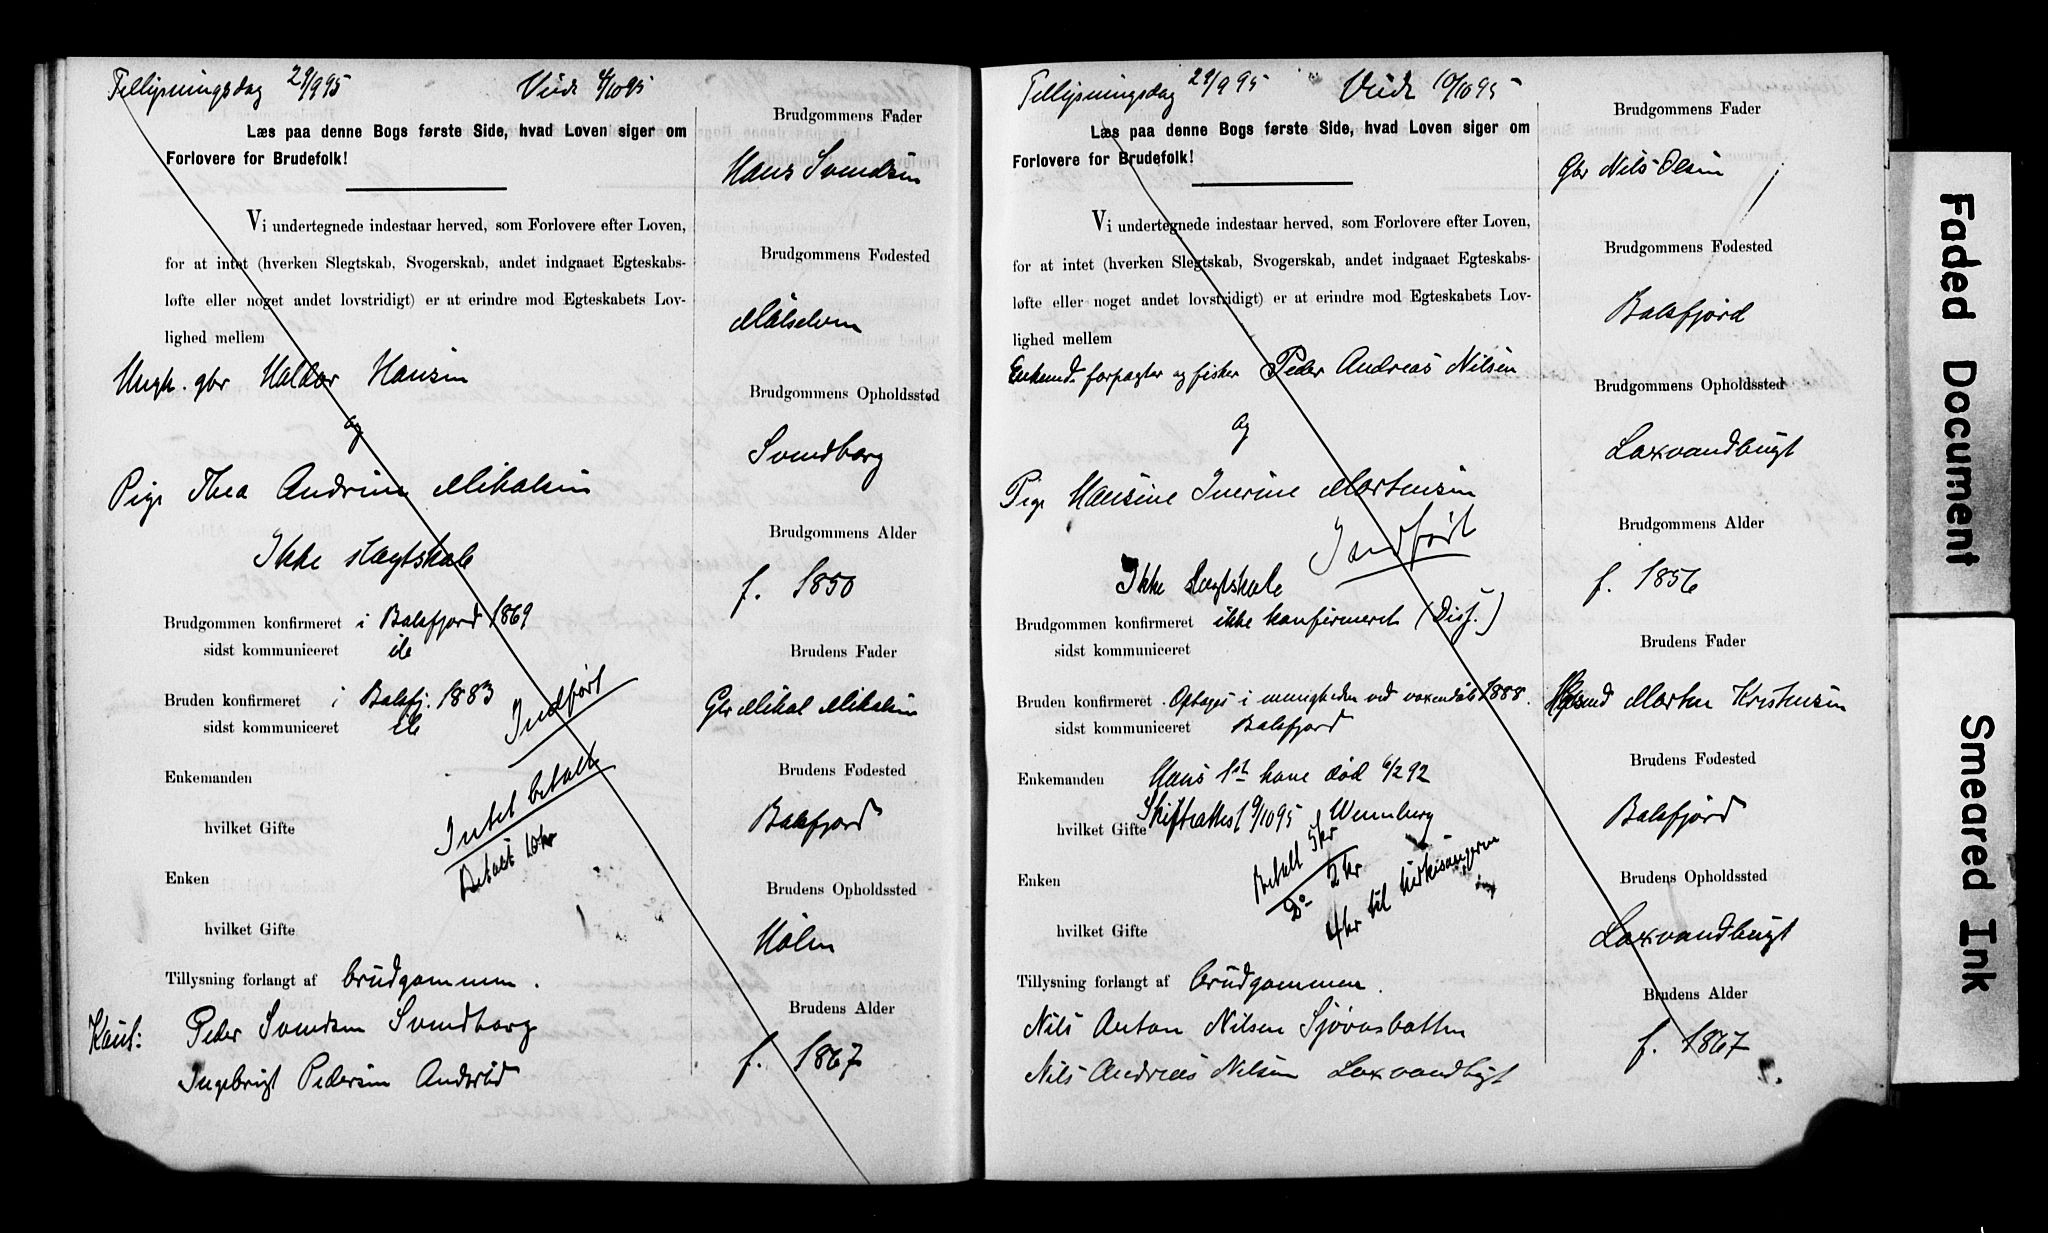 Tillysningsdag 29/9 95 Viede 4/10 95
Læs paa denne Bogs første Side, hvad Loven siger om
Forlovere for Brudefolk!
Vi undertegnede indestaar herved, som Forlovere efter Loven,
for at intet (hverken Slegtskab, Svogerskab, andet indgaaet Egteskabs-
løfte eller noget andet lovstridigt) er at erindre mod Egteskabets Lov-
lighed mellem
Ungk. gbr Haldor Hansen
og
Pige Thea Andrine Mikalsen
Ikke slægtskab
Brudgommen konfirmeret i Balsfjord 1869
sidst kommuniceret
Bruden konfirmeret i Balsfj. 1883
sidst kommuniceret
Indført
Enkemanden
Intet betalt
hvilket Gifte
Betalt 10 kr
Enken
hvilket Gifte
Tillysning forlangt af brudgommen.
Kaut: Peder Svendsen Svendborg
Ingebrigt Pedersen Andsród
Brudgommens Fader
Hans Svendsen
Brudgommens Fødested
Målselven
Brudgommens Opholdssted
Svendborg
Brudgommens Alder
f. 1850
Brudens Fader
Gbr Mikal Mikalsen
Brudens Fødested
Balsfjord
Brudens Opholdssted
Holm
Brudens Alder
f. 1867
Tillysningsdag 29/9 95 Viede 10/10 95
Læs paa denne Bogs første Side, hvad Loven siger om
Forlovere for Brudefolk!
Vi undertegnede indestaar herved, som Forlovere efter Loven,
for at intet (hverken Slegtskab, Svogerskab, andet indgaaet Egteskabs-
løfte eller noget andet lovstridigt) er at erindre mod Egteskabets Lov-
lighed mellem
Enkemd. forpagter og fisker Peder Andreas Nilsen
og
Pige Hansine Inerine Mortensen
Indført
Ikke slægtskab
Brudgommen konfirmeret ikke konfirmeret (Diss.)
sidst kommuniceret
Bruden konfirmeret Optages i menigheden ved voxendåb 1888.
sidst kommuniceret Balsfjord
Enkemanden Hans 1st kone død 6/2 92
hvilket Gifte Skifteattest 9/10 95 Wennberg
Betalt 5 kr
Do 2 kr
4 kr til kirkesangeren
Enken
hvilket Gifte
Tillysning forlangt af brudgommen.
Nils Anton Nilsen Sjøvasbotten
Nils Andreas Nilsen Laxvandbugt
Brudgommens Fader
Gbr Nils Olsen
Brudgommens Fødested
Balsfjord
Brudgommens Opholdssted
Laxvandbugt
Brudgommens Alder
f. 1856
Brudens Fader
Morten Kristensen
Brudens Fødested
Balsfjord
Brudens Opholdssted
Laxvandbugt
Brudens Alder
f. 1867
Faded Document
Smeared Ink